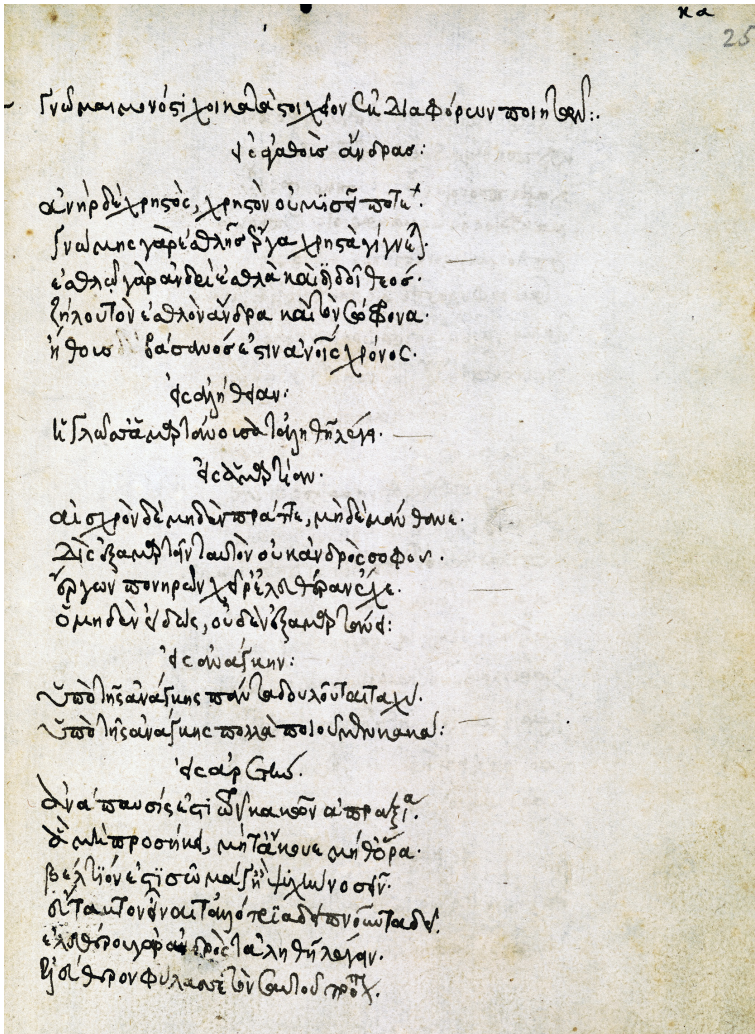 κα
25
Γνῶμαι μονόστιχοι κατὰ στοιχεῖον ἐκ διαφόρων ποιητῶν:
εἰς ἀγαθοὺς ἄνδρας:
ἀνὴρ δὲ χρηστὸς, χρηστὸν οὐ μισεῖ ποτε.
γνώμης γὰρ ἐσθλῆς ἔργα χρηστὰ γίγνεται.
ἐσθλῷ γὰρ ἀνδρὶ ἐσθλὰ καὶ διδοῖ θεός.
ζήλου τὸν ἐσθλὸν ἄνδρα καὶ τὸν σώφρονα.
ἤθους βάσανός ἐστιν ἀνοις χρόνος.
εἰς ἀλήθειαν:
τὰ ἀληθῆ λέγειν.
εἰς ἁμαρτίαν.
αἰσχρὸν δὲ μηδὲν πρᾶττε, μηδὲ μάνθανε.
δὶς ἐξαμαρτεῖν ταυτὸν οὐκ ἀνδρὸς σοφοῦ.
ἔργων πονηρῶν χεῖρ' ἐλευθέραν ἔχε.
ὁ μηδὲν εἰδὼς, οὐδὲν ἐξαμαρτάνει:
εἰς ἀνάγκην:
ὑπὸ τῆς ἀνάγκης πάντα δουλοῦται ταχύ.
ὑπὸ τῆς ἀνάγκης πολλὰ ποιοῦμεν κακά:
εἰς
ἀνάπαυσίς ἐστι τῶν κακῶν ἀπραξία.
ἃ μὴ προσήκει, μήτ' ἄκουε μήθ' ὅρα.
βέλτιόν ἐστι σῶμά γ' ἢ ψυχὴν νοσεῖν.
ἐλευθέρου γὰρ ἀνδρὸς τἀληθῆ λέγειν.
ἐλεύθερον φύλαττε τὸν σαυτοῦ τρόπον.